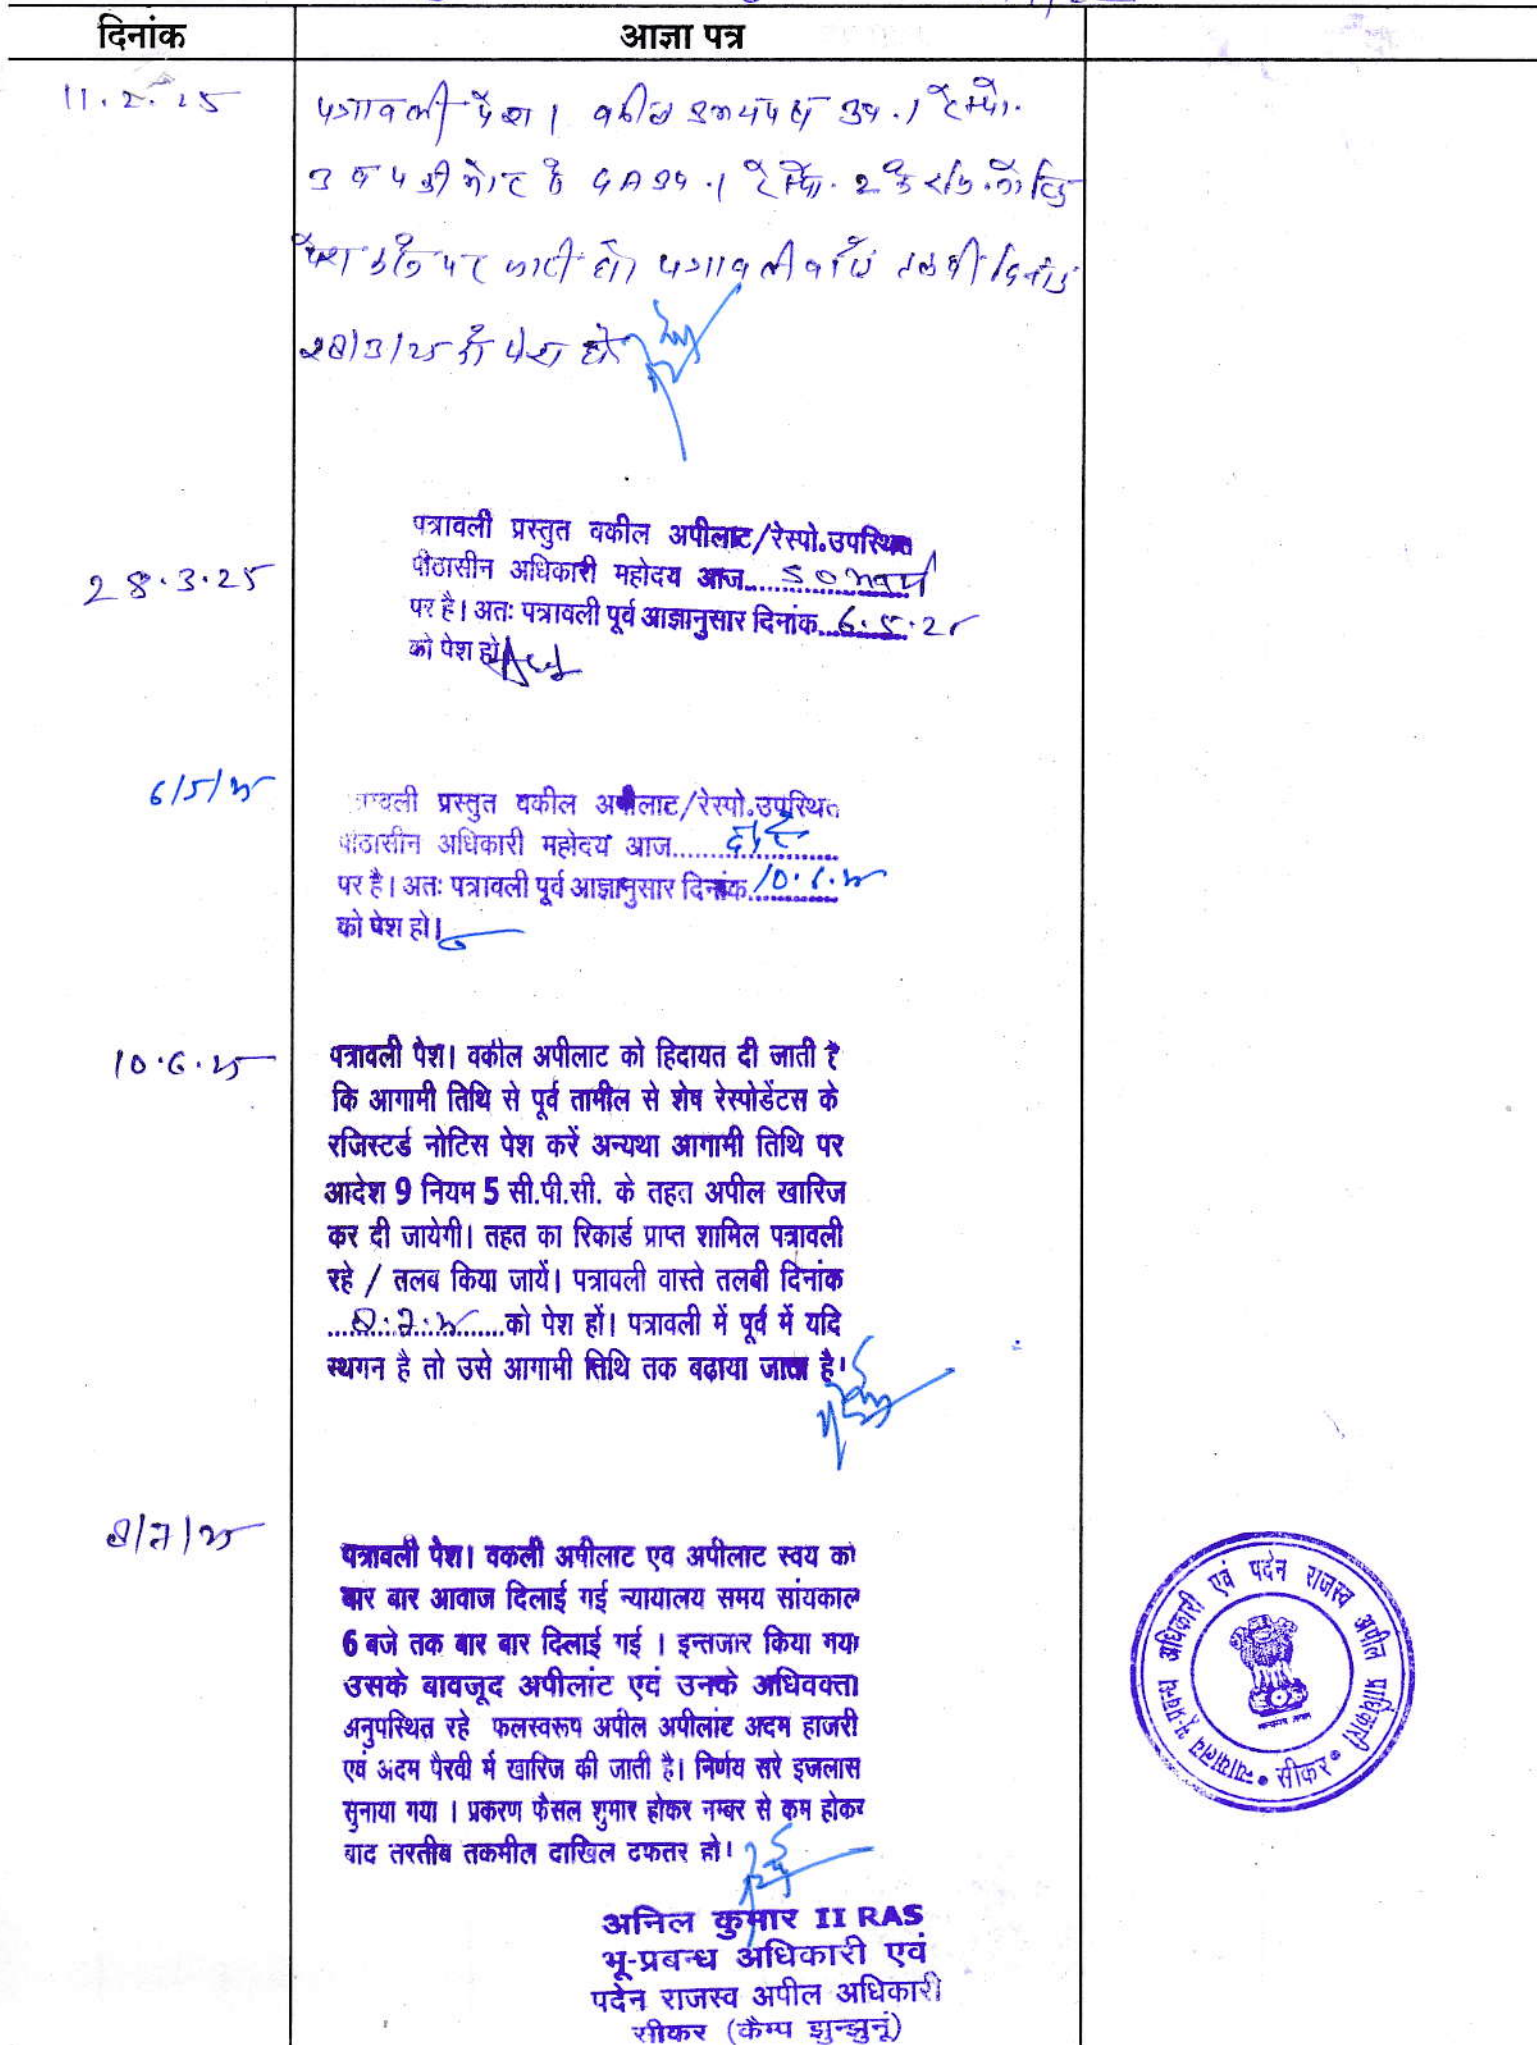 दिनांक
आज्ञा पत्र
11.2.25
पत्रावली पेश। वकील उभयपक्ष उप.। रेस्पो.
3 व 4 की ओर से
उप.। रेस्पो. 2 के रजि. नोटिस
पेश होने पर जारी हो। पत्रावली वास्ते तलबी दिनांक
28/3/25 को पेश हो
28.3.25
पत्रावली प्रस्तुत वकील अपीलाट/रेस्पो.उपस्थित
पीठासीन अधिकारी महोदय आज
पर है। अतः पत्रावली पूर्व आज्ञानुसार दिनांक 6.5.25
को पेश हो
6/5/25
पत्रावली प्रस्तुत वकील अपीलाट/रेस्पो.उपस्थित
पीठासीन अधिकारी महोदय आज
पर है। अतः पत्रावली पूर्व आज्ञानुसार दिनांक 10.6.25
को पेश हो।
10.6.25
पत्रावली पेश। वकील अपीलाट को हिदायत दी जाती है
कि आगामी तिथि से पूर्व तामील से शेष रेस्पोडेंटस के
रजिस्टर्ड नोटिस पेश करें अन्यथा आगामी तिथि पर
आदेश 9 नियम 5 सी.पी.सी. के तहत अपील खारिज
कर दी जायेगी। तहत का रिकार्ड प्राप्त शामिल पत्रावली
रहे / तलब किया जायें। पत्रावली वास्ते तलबी दिनांक
8.7.25 को पेश हों। पत्रावली में पूर्व में यदि
स्थगन है तो उसे आगामी तिथि तक बढ़ाया जाता है।
8/7/25
पत्रावली पेश। वकली अपीलाट एव अपीलाट स्वय को
बार बार आवाज दिलाई गई न्यायालय समय सांयकाल
6 बजे तक बार बार दिलाई गई । इन्तजार किया गया
उसके बावजूद अपीलांट एवं उनके अधिवक्ता
अनुपस्थित रहे फलस्वरूप अपील अपीलांट अदम हाजरी
एवं अदम पैरवी में खारिज की जाती है। निर्णय सरे इजलास
सुनाया गया । प्रकरण फैसल शुमार होकर नम्बर से कम होकर
बाद तरतीब तकमील दाखिल दफतर हो।
अनिल कुमार II RAS
भू-प्रबन्ध अधिकारी एवं
पदेन राजस्व अपील अधिकारी
सीकर (कैम्प झुन्झुनूं)
न्यायालय भू-प्रबन्ध अधिकारी एवं पदेन राजस्व अपील प्राधिकारी
• सीकर •